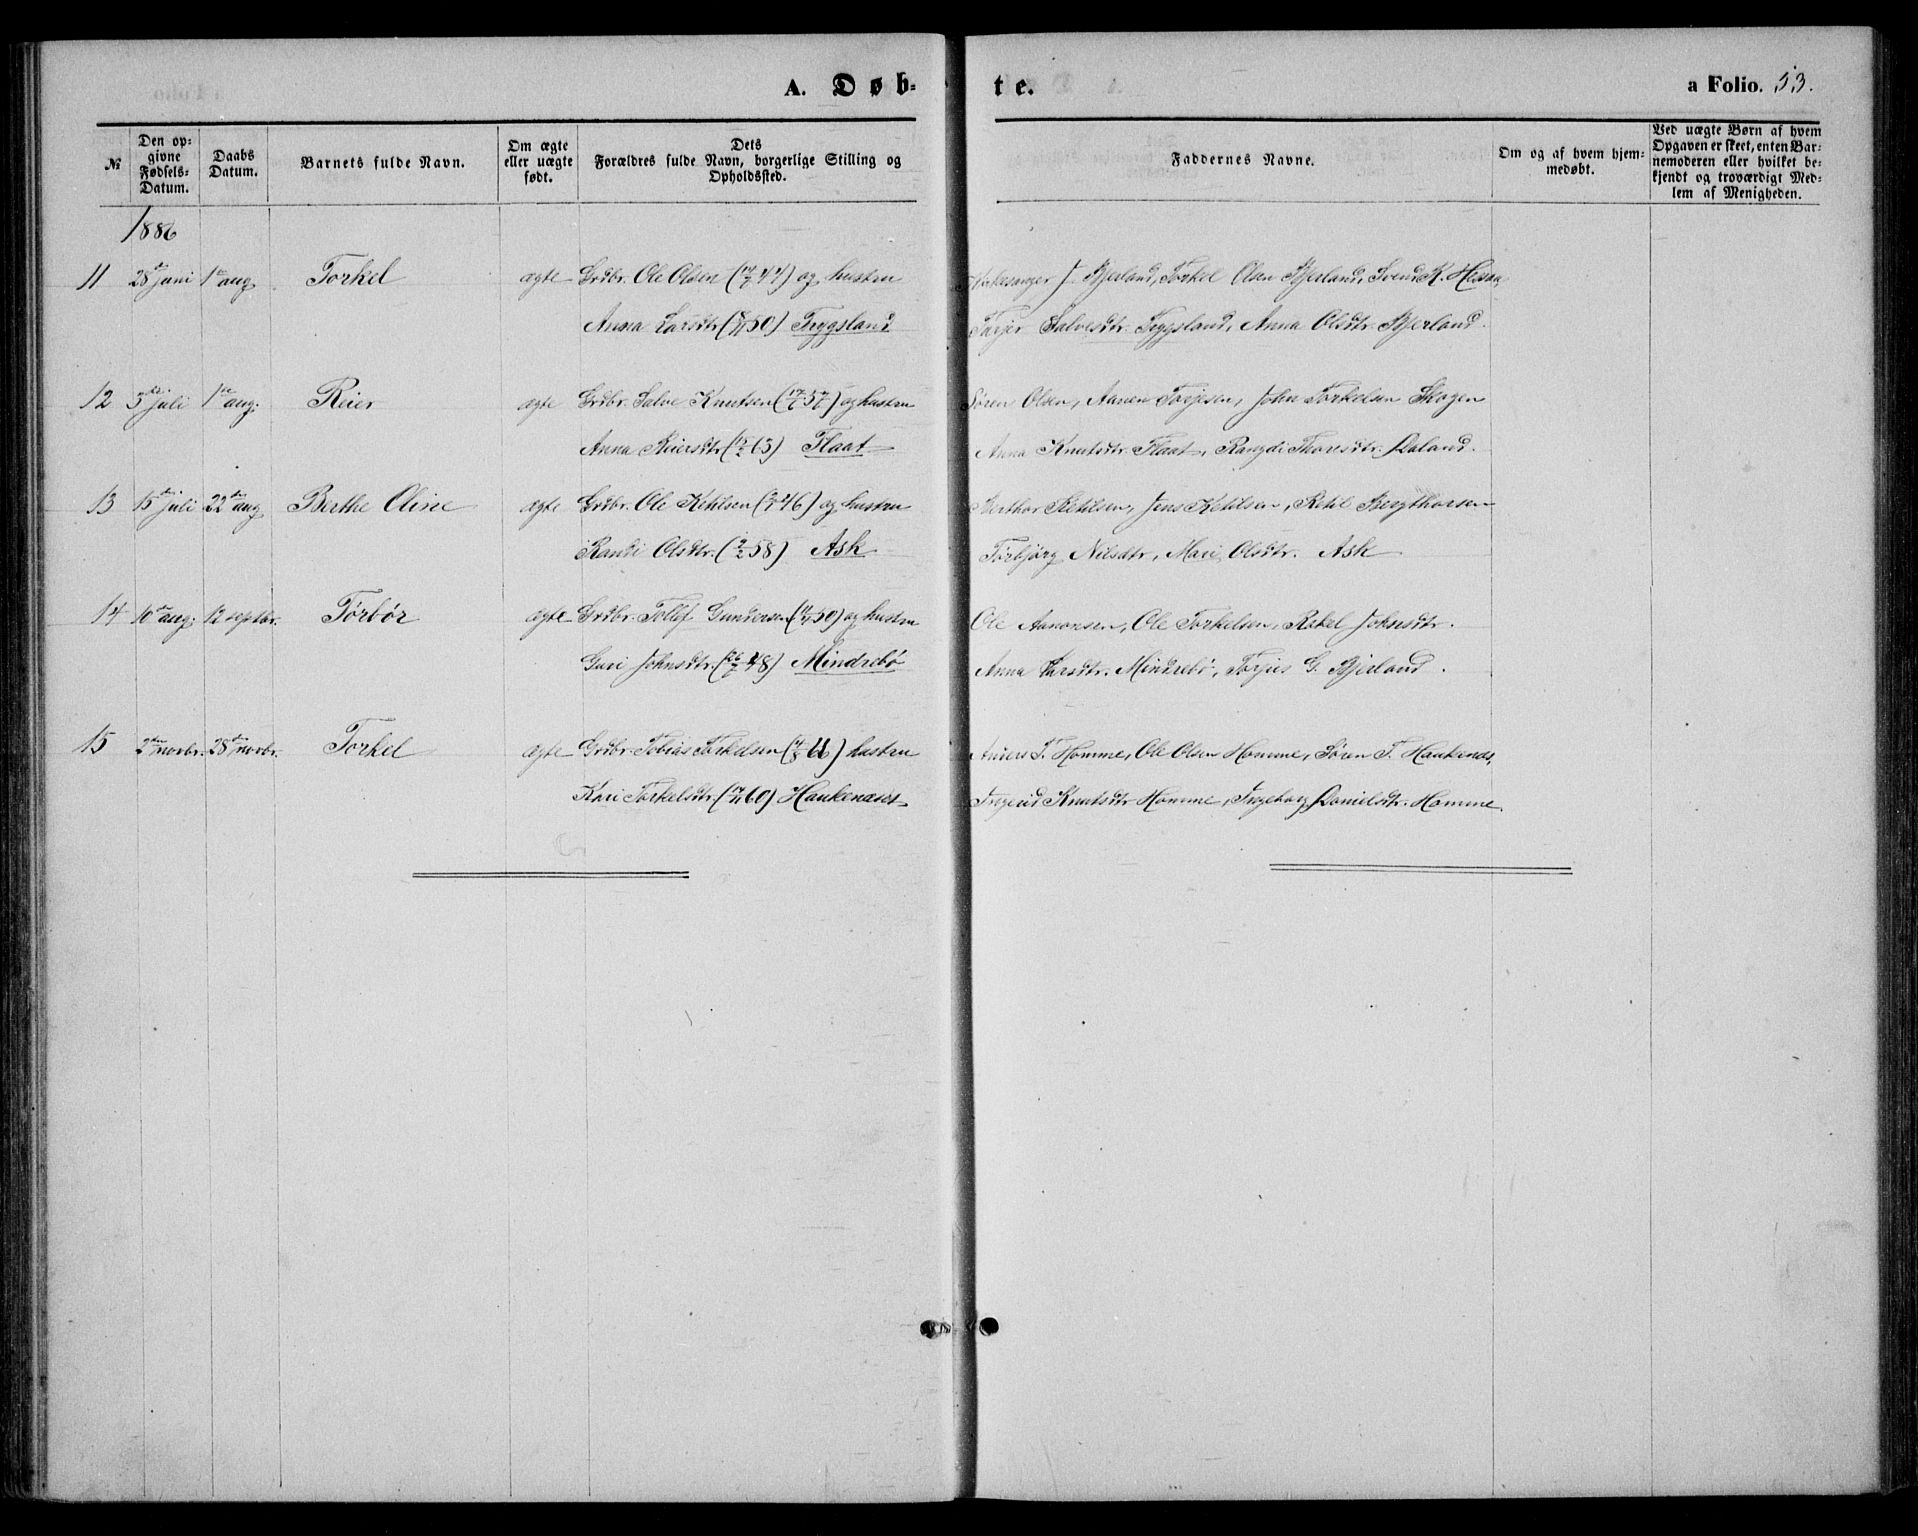 A. Døb-
te.
a Folio. 53.
№
Den op-
givne
Fødsels-
Datum.
Daabs
Datum.
Barnets fulde Navn.
Om ægte
eller uægte
født.
Dets
Forældres fulde Navn, borgerlige Stilling og
Opholdssted.
Faddernes Navne.
Om og af hvem hjem-
medøbt.
Ved uægte Børn af hvem
Opgaven er skeet, enten Bar-
nemoderen eller hvilket be-
kjendt og troværdigt Med-
lem af Menigheden.
1886
11 28de juni 1ste aug Torkel ægte Grdbr. Ole Olsen og hustru
Anna Larsdtr. Trygsland
Kirkesanger J. Bjerland, Torkel Olsen Bjerland, Svend K.
Salvesdtr. Trygsland, Anna Olsdtr. Bjerland.
12 5te juli 1ste aug. Reier ægte Grdbr. Salve Knutsen og hustru
Anna Reiersdtr. Flaat
Søren Olsen, Aanen Torjesen, John Torkelsen Skogen
Anna Knutsdtr. Flaat, Rangdi Thoresdtr. Daland.
13 15de juli 22de aug Berthe Oline ægte Grdbr. Ole Ketilsen og hustru
Randi Olsdtr. Ask
Berthor Ketilsen, Jens Ketilsen, Ketil Bergthorsen
Torbjørg Nilsdtr, Mari Olsdtr. Ask
14 10de aug. 12 septbr. Tørbør ægte Grdbr. Tollef Gundersen og hustru
Guri Johnsdtr. Mindrebø
Ole Aanonsen, Ole Torkelsen, Rakel Johnsdtr.
Anna Larsdtr. Mindrebø, Torjus G. Bjerland.
15 2den novbr. 28de novbr. Torkel ægte Grdbr. Tobias Torkelsen hustru
Kari Torkelsdtr. Haukenæset
Anders T. Homme, Ole Olsen Homme, Søren T. Haukenæs,
Ingerid Knutsdtr Homme, Ingeborg Danielsdtr. Homme.